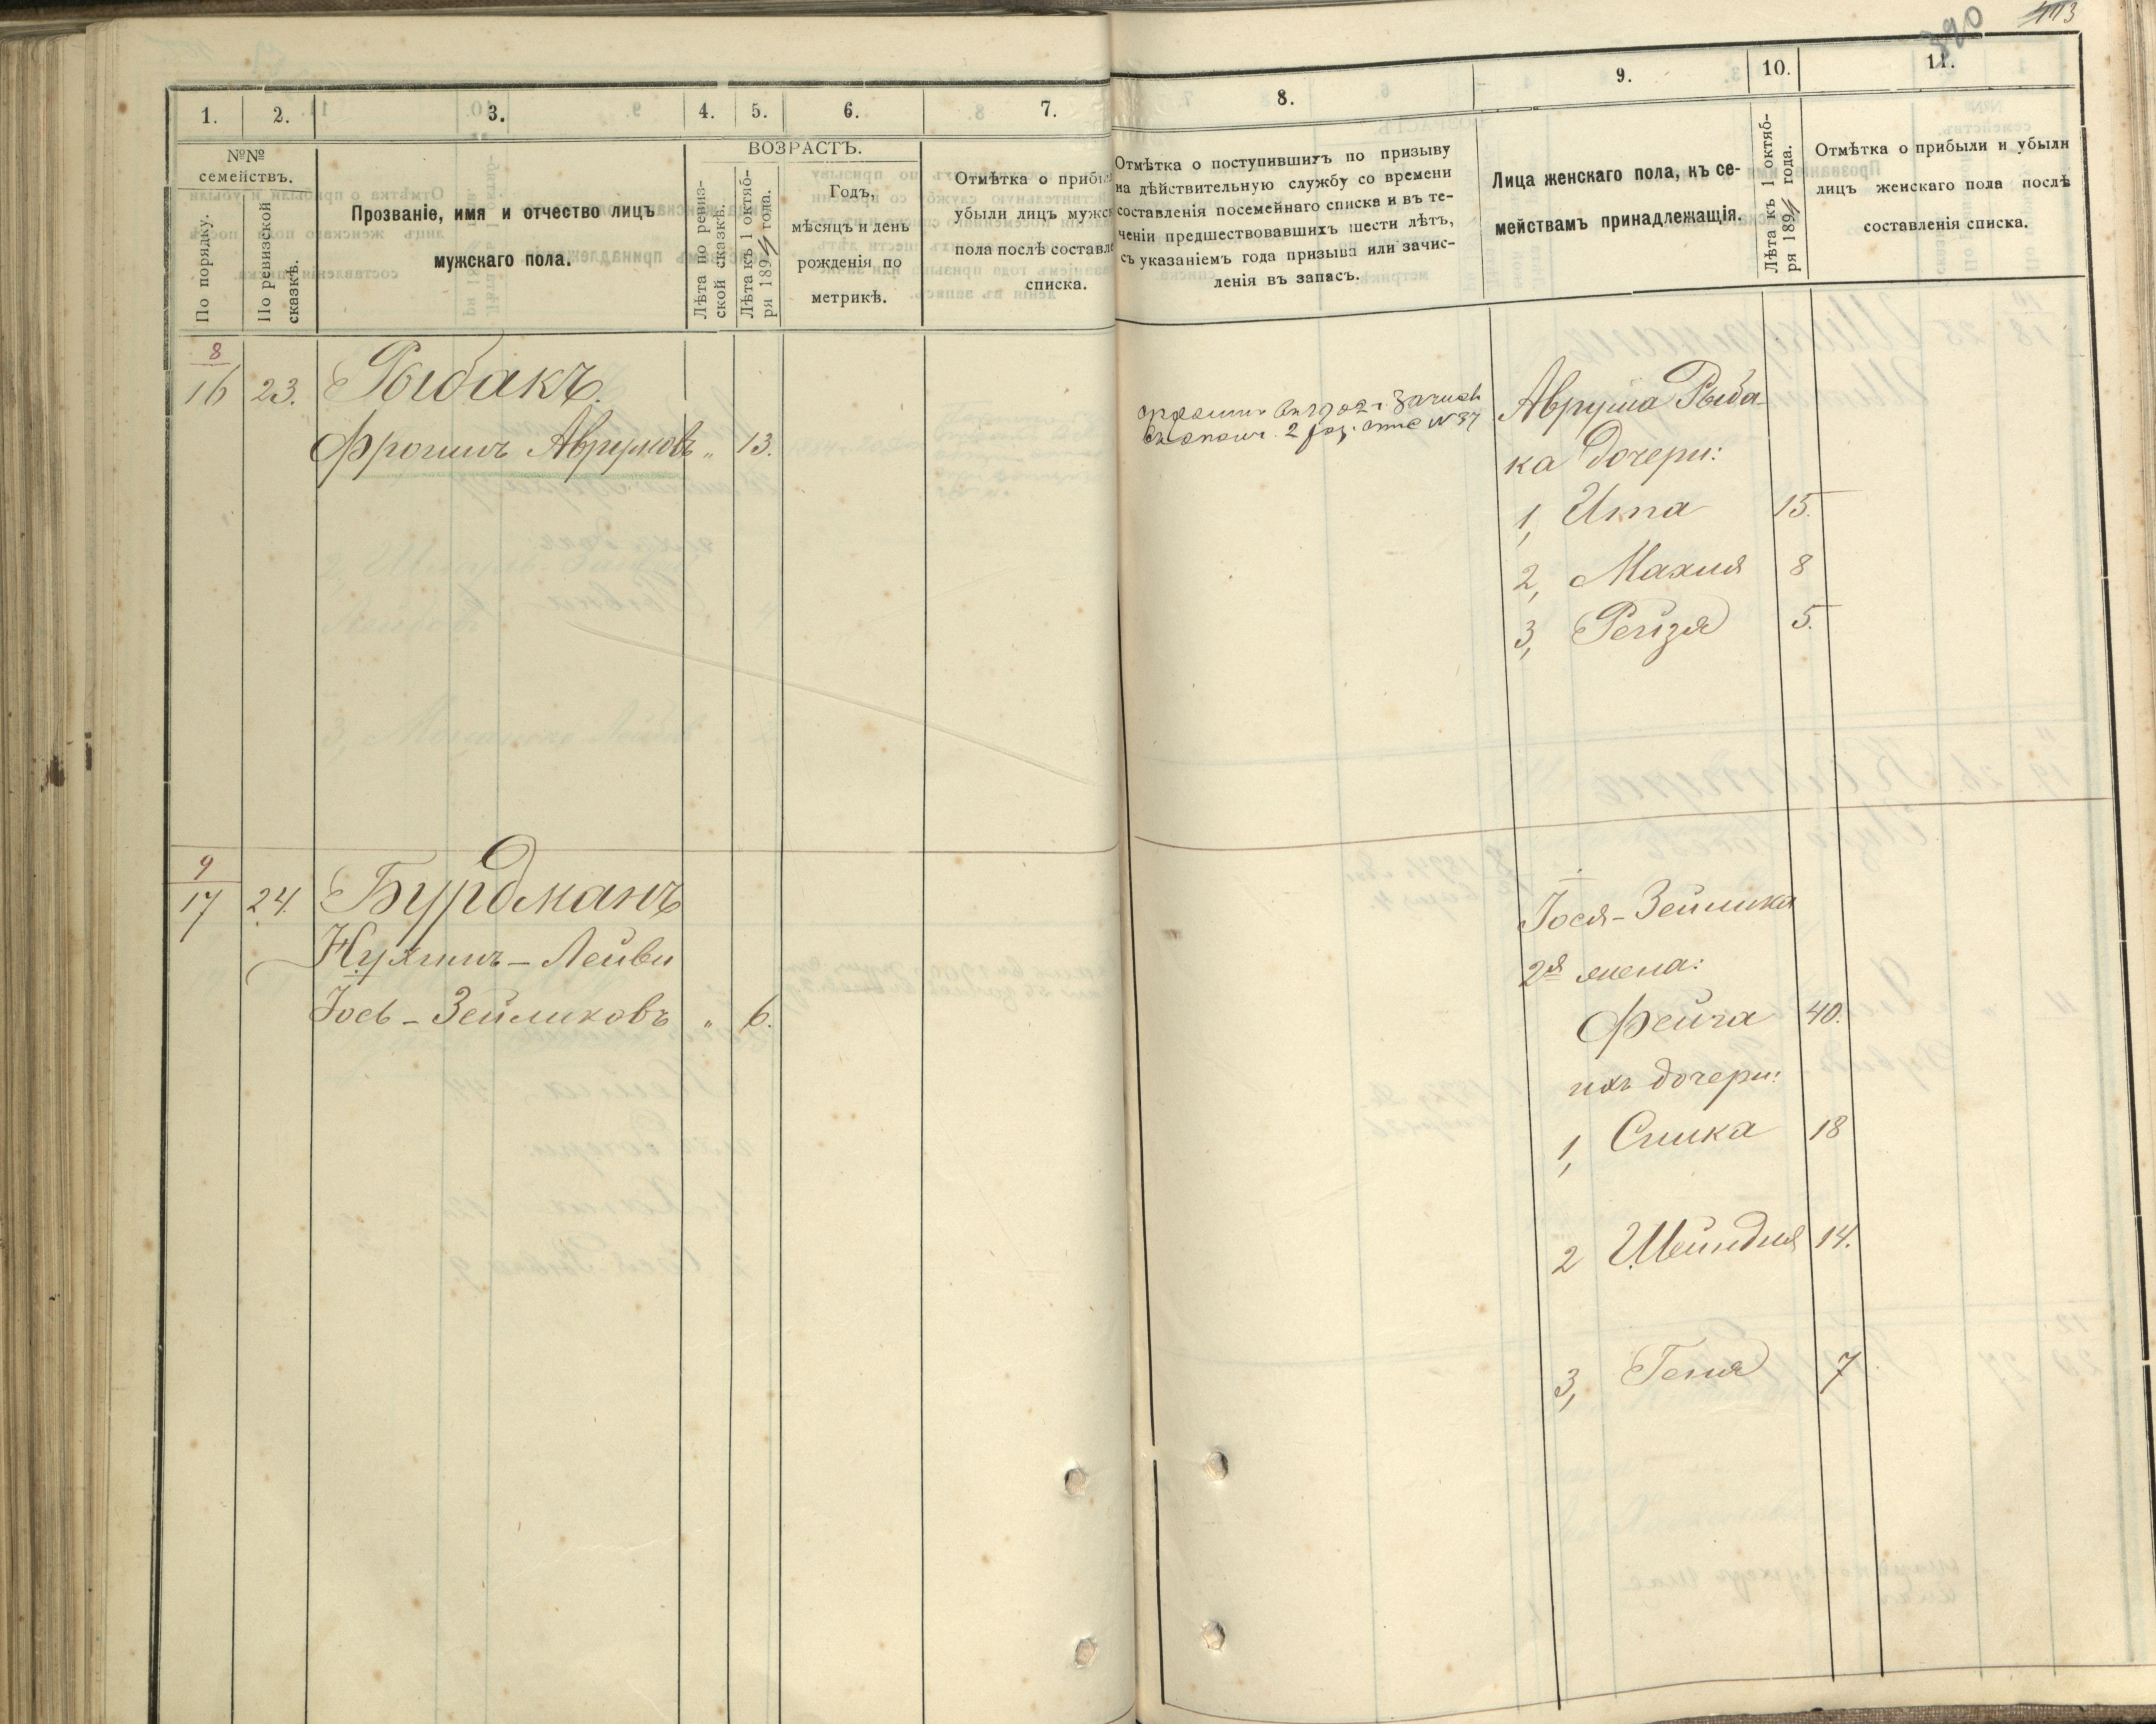 413
390
1.
2.
3.
4.
5.
6.
7.
№№
семействъ.
По порядку.
По ревизской
сказкѣ.
Прозваніе, имя и отчество лицъ
мужскаго пола.
ВОЗРАСТЪ.
Лѣта по ревиз-
ской сказкѣ.
Лѣта къ 1 октяб-
ря 189 года.
Годъ,
мѣсяцъ и день
рожденія по
метрикѣ.
Отмѣтка о прибы
убыли лицъ мужск
пола послѣ составле
списка.
8
16 23. Рыбакъ.
Фроимъ Аврумовъ „ 13.
9
17 24. Бурдманъ
Нухимъ-Лейви
Іось-Зейликовъ „ 6.
8.
9.
10.
11.
Отмѣтка о поступившихъ по призыву
на дѣйствительную службу со времени
составленія посемейнаго списка и въ те-
ченіи предшествовавшихъ шести лѣтъ,
съ указаніемъ года призыва или зачис-
ленія въ запасъ.
Лица женскаго пола, къ се-
мействамъ принадлежащія.
Лѣта къ 1 октяб-
ря 189 года.
Отмѣтка о прибыли и убыли
лицъ женскаго пола послѣ
составленія списка.
въ 1902 г зачисл
въ ополч. 2 раз. № 37
Аврума Рыба-
ка дочери:
1, Ита 15.
2, Махля 8
3, Рейзя 5.
Іося-Зейлика
2я жена:
Фейга 40.
ихъ дочери:
1, Симка 18
2 Шейндля 14.
3, Геня 7